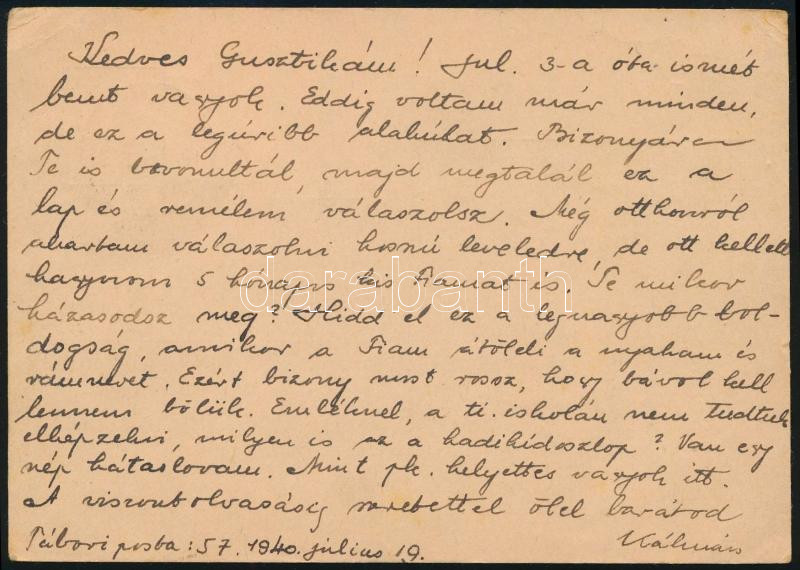 Kedves Gusztikám! Jul. 3-a óta ismét
bent vagyok. Eddig voltam már minden,
de ez a legúribb alakulat. Bizonyára
Te is bevonultál, majd megtalál ez a
lap és remélem, válaszolsz. Még otthonról
akartam válaszolni hosszú leveledre, de ott kellett
hagynom 5 hónapos kis Fiamat is. Te mikor
házasodsz meg? Hidd el ez a legnagyobb bol-
dogság, amikor a Fiam átöleli a nyakam és
rámnevet. Ezért bizony most rossz, hogy távol kell
lennem tőlük. Emlékszel, a ti. iskolán nem tudtuk
elképzelni, milyen is az a hadihídoszlop? Van egy
szép hátaslovam. Mint pk. helyettes vagyok itt.
A viszontolvasásig szeretettel ölel barátod
Tábori posta: 57. 1940. július 19. Kálmán
darabanth